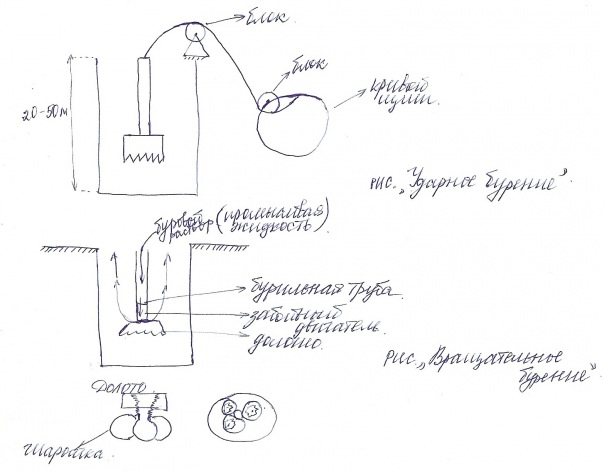 блок
блок
кривой
шип.
20-50м
рис. „Ударное бурение".
буровой
раствор (промывная
жидкость).
бурильная труба.
забойный
двигатель.
долото.
рис. „Вращательное
бурение"
Долото
шарошка.